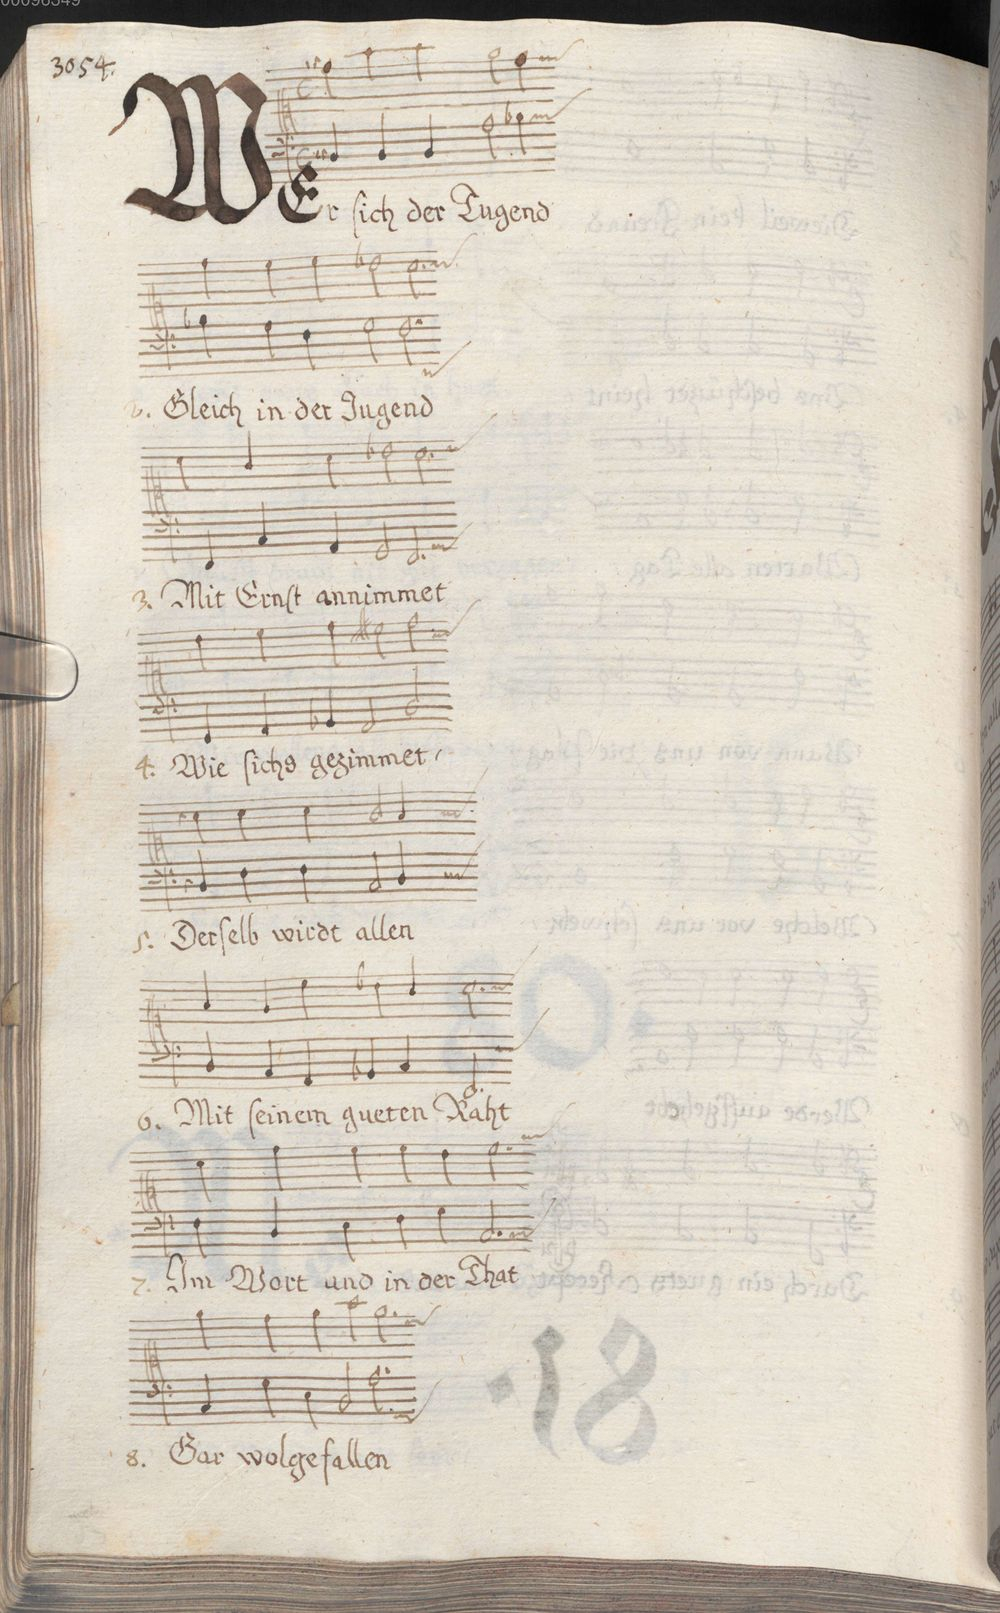 3054.
WEr sich der Tugend
2. Gleich in der Jugend
3. Mit Ernst annimmet
4. Wie sichs gezimmet
5. Derselb wirdt allen
6. Mit seinem gueten Raht
7. Im Wort und in der That
8. Gar wolgefallen